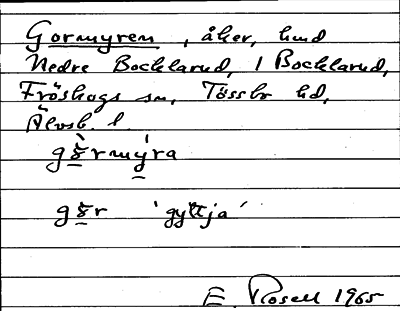 Gormyren, åker, hmd
Nedre Bocklarud, 1 Bocklarud,
Fröskogs sn, Tössbo hd,
Älvsb. l.
gȫ̀rmýra
gör 'gyttja'
E. Rosell 1965